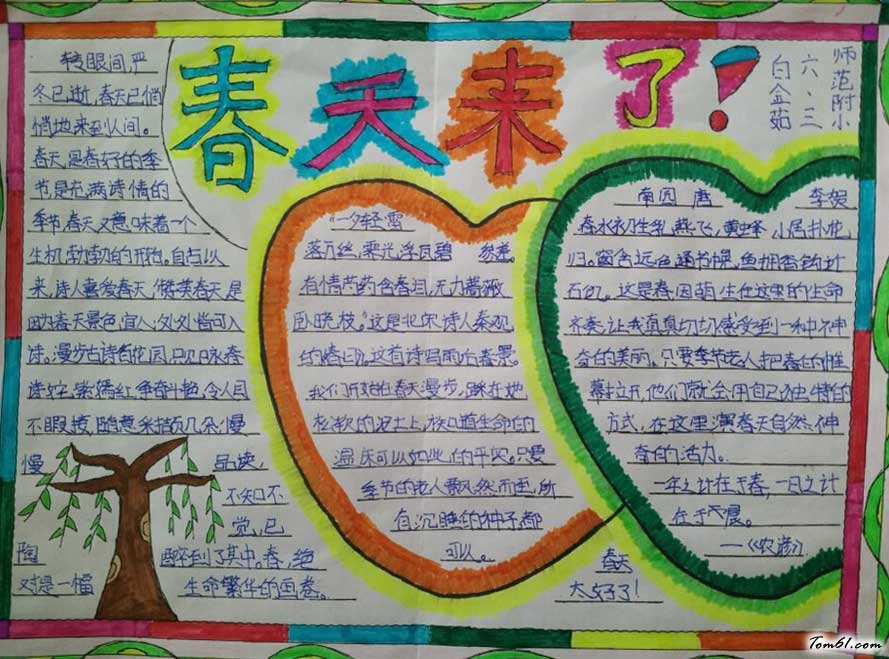 春天来了!
师范附小
六、三
白金茹
转眼间,严
冬已逝,春天已悄
悄地来到人间。
春天,是春好的季
节,是充满诗情的
季节,春天又意味着一个
生机勃勃的开始。自古以
来,诗人喜爱春天,赞美春天,是
因为春天景色,宜人,处处皆可入
诗。漫步古诗百花园,只见咏春
诗姹紫嫣红,争奇斗艳,令人目
不暇接,随意采撷几朵,慢
慢 品读,
不知不
觉,已
陶 醉到了其中。春,绝
对是一幅 生命繁华的画卷。
"一夕轻雷
落万丝,霁光浮瓦碧 参差。
有情芍药含春泪,无力蔷薇
卧晓枝。"这是北宋诗人秦观
的春日,这首诗写雨后春景。
我们开始在春天漫步,踩在她
松软的泥土上,
温床可以如此的平实。只要
季节的老人飘然而至,所
有沉睡的种子,都
可以。
南园 唐 李贺
春水初生乳燕飞,黄蜂小尾扑花
归。窗含远色通书幌,鱼拥香钩近
石矶。这是春,因萌生在这里的生命
齐奏,让我真真切切感受到一种神
奇的美丽。只要季节老人把春的帷
幕拉开,他们就会用自己独特的
方式,在这里演春天自然神
奇的活力。
一年之计在于春,一日之计
在于晨。
—《农谚》
春天
太好了!
Tom61.com